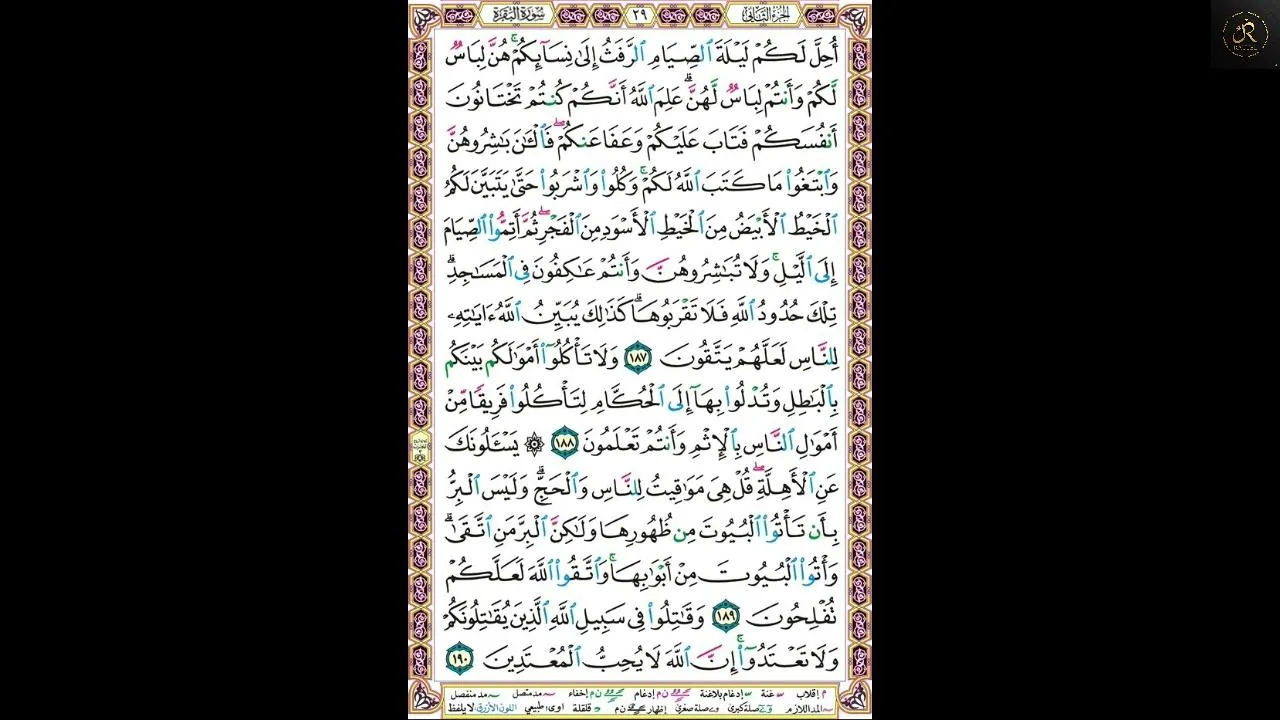 الجزء الثاني
٢٩
سورة البقرة
أُحِلَّ لَكُمْ لَيْلَةَ ٱلصِّيَامِ ٱلرَّفَثُ إِلَىٰ نِسَآئِكُمْ ۚ هُنَّ لِبَاسٌ
لَّكُمْ وَأَنتُمْ لِبَاسٌ لَّهُنَّ ۗ عَلِمَ ٱللَّهُ أَنَّكُمْ كُنتُمْ تَخْتَانُونَ
أَنفُسَكُمْ فَتَابَ عَلَيْكُمْ وَعَفَا عَنكُمْ ۖ فَٱلْـَٰٔنَ بَـٰشِرُوهُنَّ
وَٱبْتَغُوا۟ مَا كَتَبَ ٱللَّهُ لَكُمْ ۚ وَكُلُوا۟ وَٱشْرَبُوا۟ حَتَّىٰ يَتَبَيَّنَ لَكُمُ
ٱلْخَيْطُ ٱلْأَبْيَضُ مِنَ ٱلْخَيْطِ ٱلْأَسْوَدِ مِنَ ٱلْفَجْرِ ۖ ثُمَّ أَتِمُّوا۟ ٱلصِّيَامَ
إِلَى ٱلَّيْلِ ۚ وَلَا تُبَـٰشِرُوهُنَّ وَأَنتُمْ عَـٰكِفُونَ فِى ٱلْمَسَـٰجِدِ ۗ
تِلْكَ حُدُودُ ٱللَّهِ فَلَا تَقْرَبُوهَا ۗ كَذَٰلِكَ يُبَيِّنُ ٱللَّهُ ءَايَـٰتِهِۦ
لِلنَّاسِ لَعَلَّهُمْ يَتَّقُونَ ١٨٧ وَلَا تَأْكُلُوٓا۟ أَمْوَٰلَكُم بَيْنَكُم
بِٱلْبَـٰطِلِ وَتُدْلُوا۟ بِهَآ إِلَى ٱلْحُكَّامِ لِتَأْكُلُوا۟ فَرِيقًا مِّنْ
أَمْوَٰلِ ٱلنَّاسِ بِٱلْإِثْمِ وَأَنتُمْ تَعْلَمُونَ ١٨٨ ۞ يَسْـَٔلُونَكَ
عَنِ ٱلْأَهِلَّةِ ۖ قُلْ هِىَ مَوَٰقِيتُ لِلنَّاسِ وَٱلْحَجِّ ۗ وَلَيْسَ ٱلْبِرُّ
بِأَن تَأْتُوا۟ ٱلْبُيُوتَ مِن ظُهُورِهَا وَلَـٰكِنَّ ٱلْبِرَّ مَنِ ٱتَّقَىٰ ۗ
وَأْتُوا۟ ٱلْبُيُوتَ مِنْ أَبْوَٰبِهَا ۚ وَٱتَّقُوا۟ ٱللَّهَ لَعَلَّكُمْ
تُفْلِحُونَ ١٨٩ وَقَـٰتِلُوا۟ فِى سَبِيلِ ٱللَّهِ ٱلَّذِينَ يُقَـٰتِلُونَكُمْ
وَلَا تَعْتَدُوٓا۟ ۚ إِنَّ ٱللَّهَ لَا يُحِبُّ ٱلْمُعْتَدِينَ ١٩٠
م إقلاب غنة إدغام بلاغنة ن م إدغام ن م إخفاء مد متصل مد منفصل
المد اللازم صلة كبرى صلة صغرى إظهار ن م قلقلة اوى: طبيعي اللون الأزرق لا يلفظ